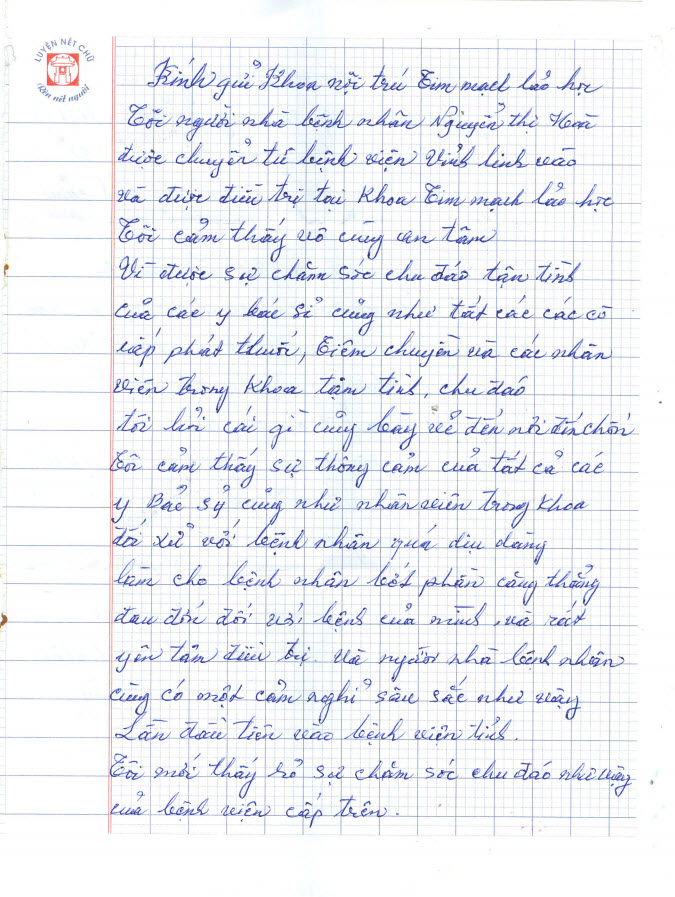 LUYỆN NẾT CHỮ
Rèn nết người
Kính gửi Khoa nội trú Tim mạch lảo học
Tôi người nhà bệnh nhân Nguyển thị Hoà
được chuyển từ bệnh viện Vỉnh linh vào
và được điều trị tại Khoa Tim mạch lảo học
Tôi cảm thấy vô cùng an tâm
Vì được sự chăm sóc chu đáo tận tình
của các y bác sỉ củng như tất các các cô
cấp phát thuốc, Tiêm chuyền và các nhân
viên trong Khoa tậm tình, chu đáo
tôi hỏi cái gì củng bày vẻ đến nơi đến chốn
Tôi cảm thấy sự thông cảm của tất cả các
y Bác sỷ củng như nhân viên trong Khoa
đối xử với bệnh nhân quá dịu dàng
làm cho bệnh nhân bớt phần căng thẳng
đau đớn đối với bệnh của mình, và rất
yên tâm điều trị. Và người nhà bệnh nhân
củng có một cảm nghỉ sâu sắc như vậy
Lần đầu tiên vào bệnh viện tỉnh.
Tôi mới thấy rỏ sự chăm sóc chu đáo như vậy
của bệnh viện cấp trên.